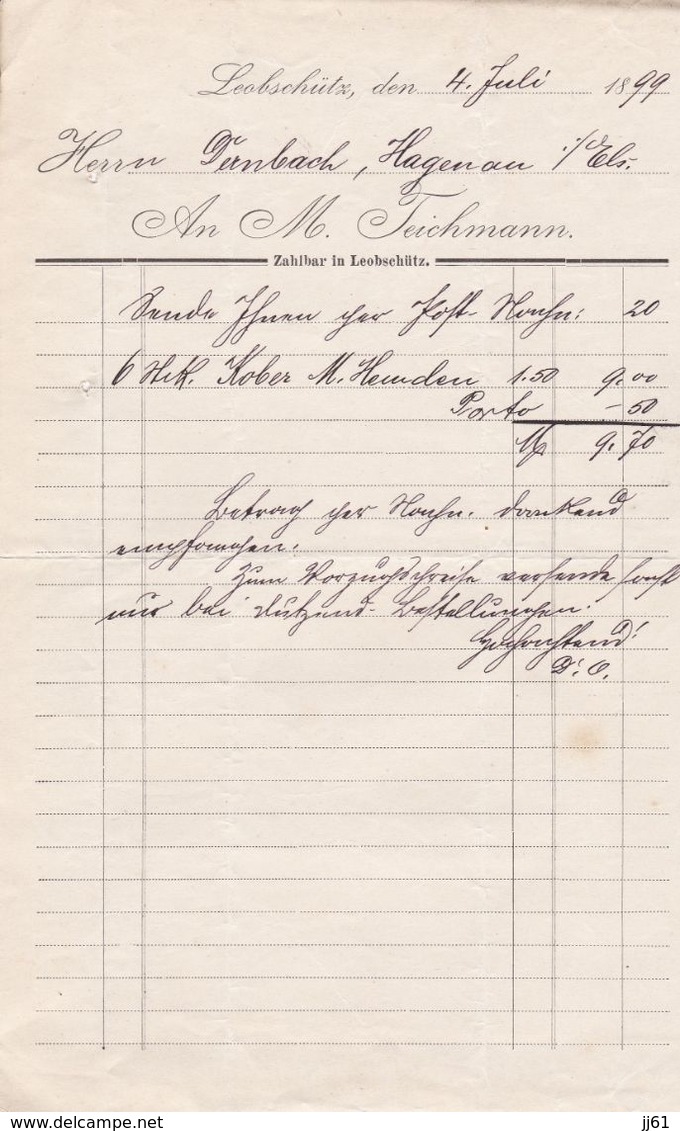 Leobschütz, den 4. Juli 1899
Herrn Dernbach, Hagenau i/Els.
An M. Teichmann.
Zahlbar in Leobschütz.
Sende Ihnen per Post-Nachn: 20
6 Stck. Kober M. Hemden 1.50 9.00
Porto -50
M 9.70
Betrag per Nachn. dankend
empfangen.
Zum Vorzugspreise versende sonst
nur bei Dutzend-Bestellungen.
Hochachtend!
D. O.
delcampe.net
jj61